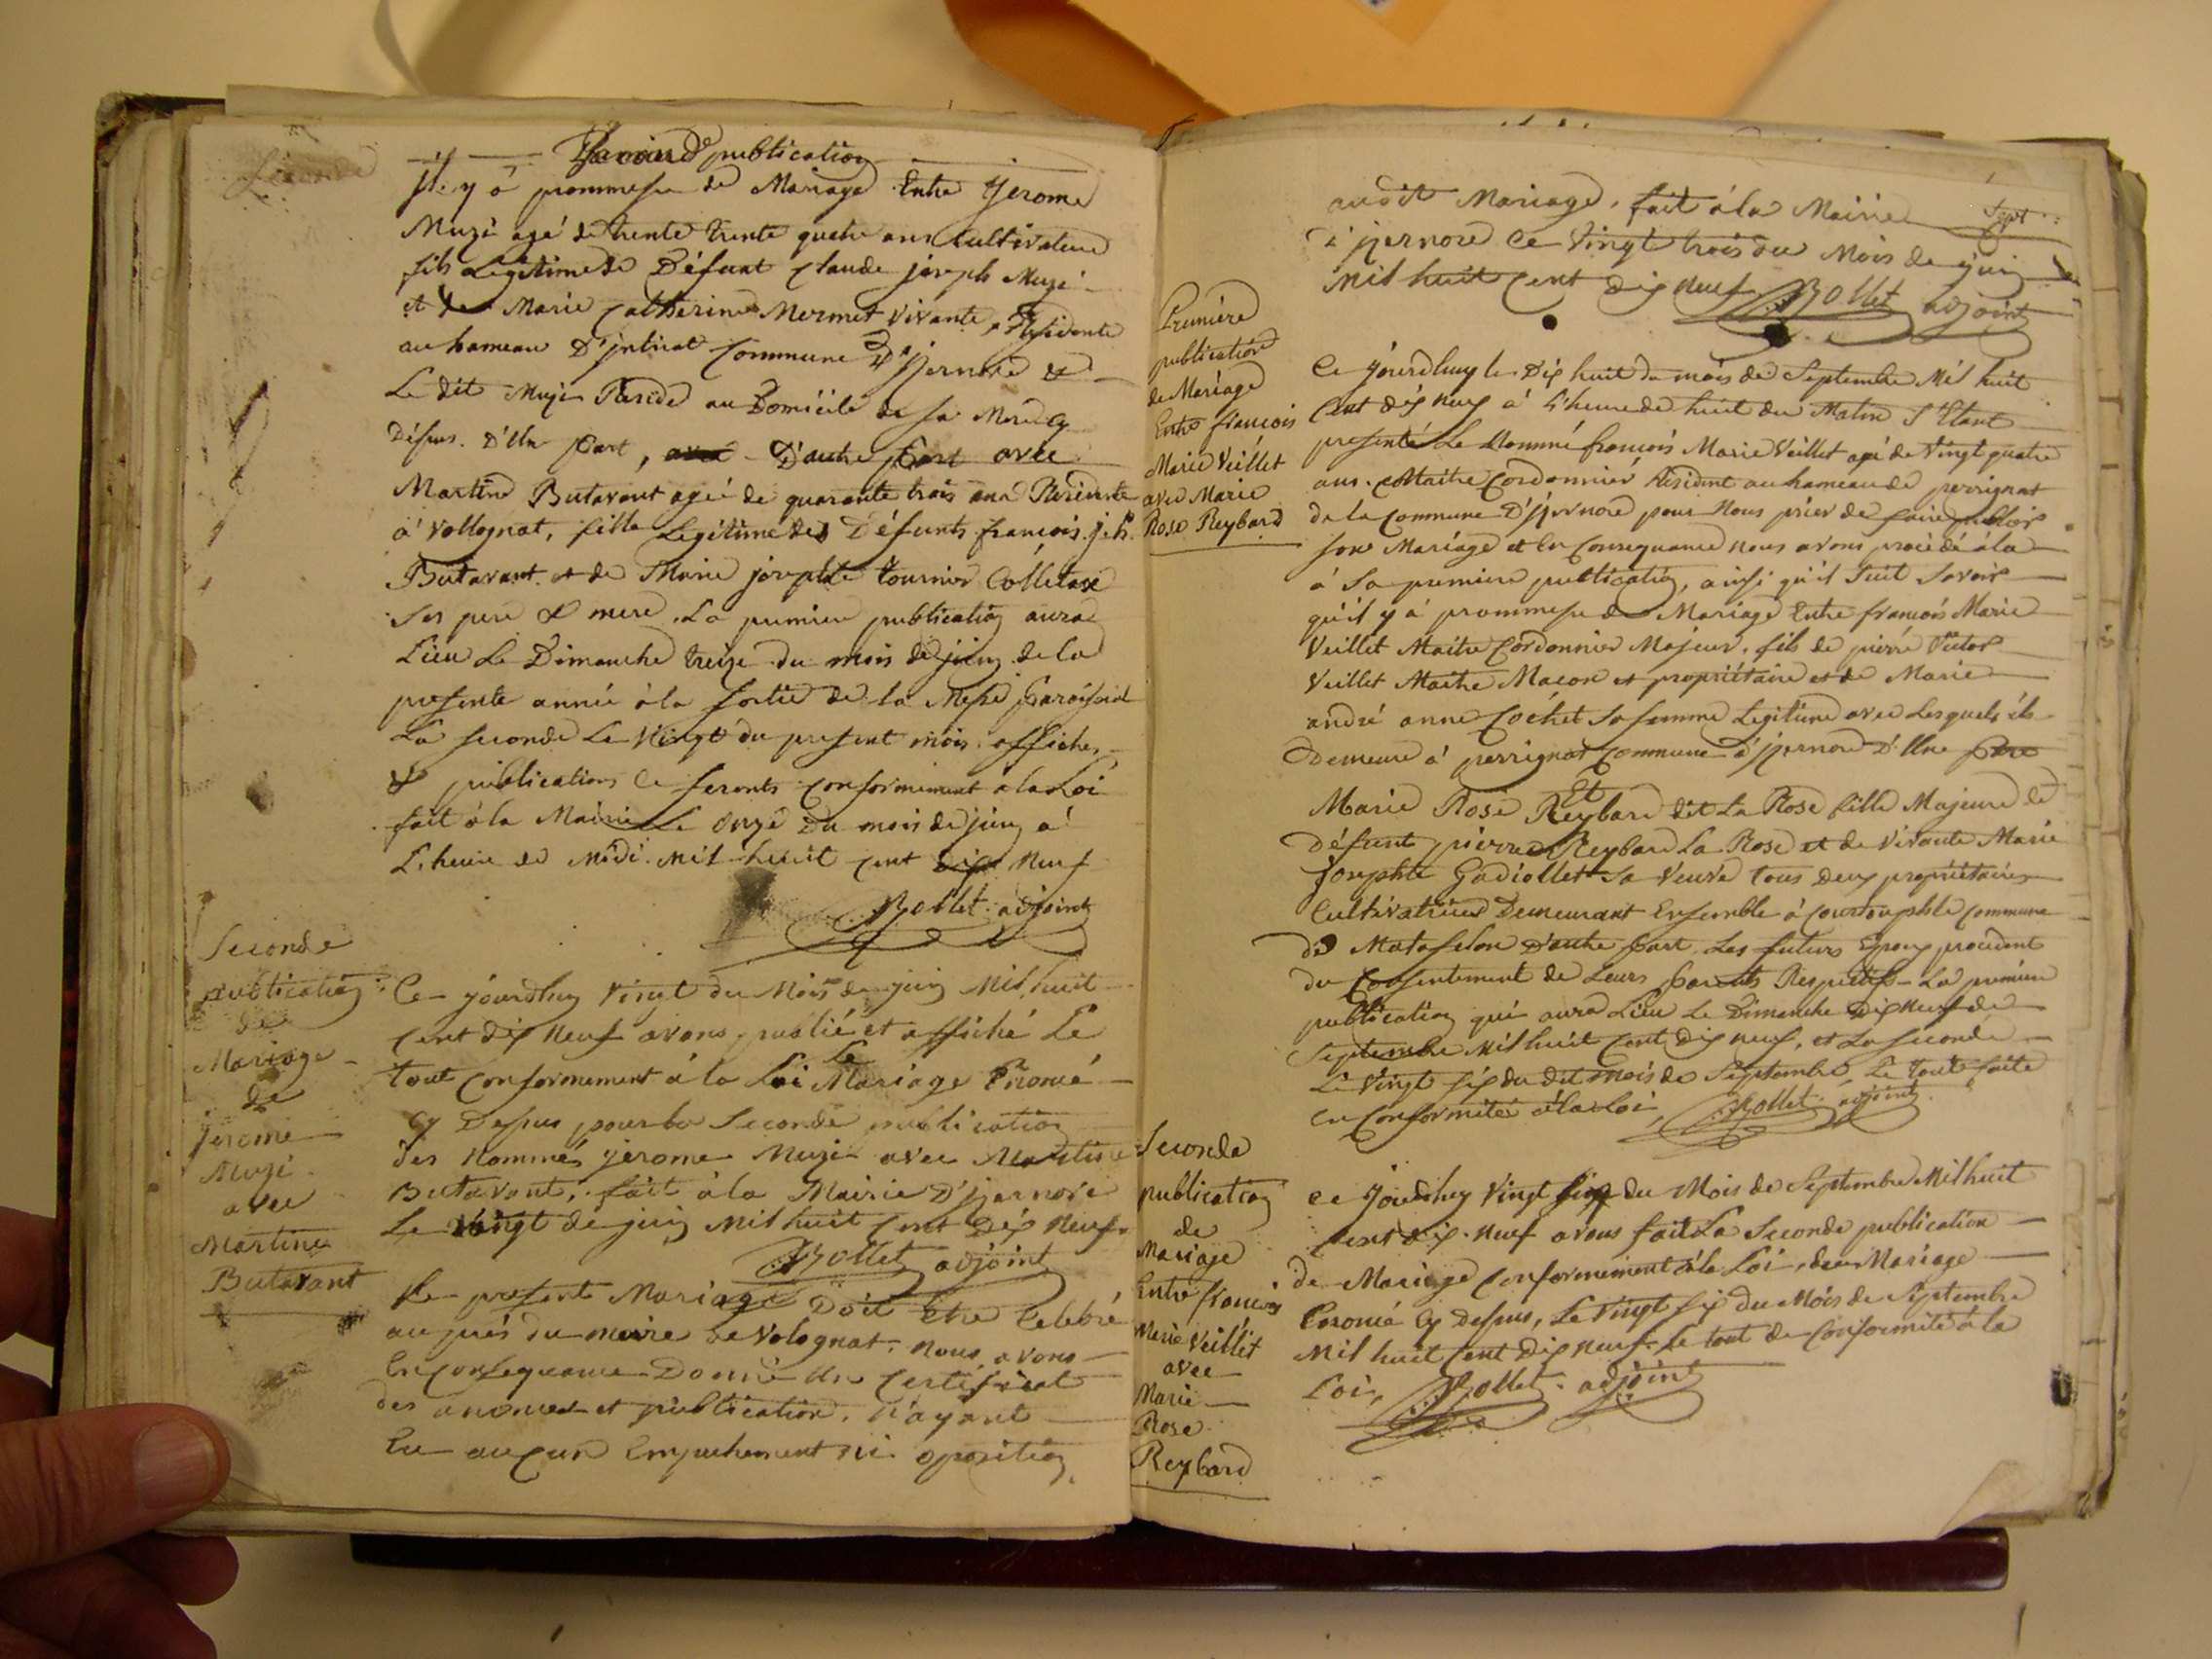 Seconde
Seconde publication
Il y à prommesse de Mariage Entre Jerome
Muzi agé de trente trente quatre ans Cultivateur
fils Legitime de Défunt Claude joseph Muzi
et de Marie Catherine Mermet vivante, Residente
au hameau D'intriat Commune D'jzernore &
Le dit Muzi Reside au Domicile de sa Mere cy
dessus. D'Une part, D'autre part avec
Martine Butavant ageé de quarante trois ans Residente
à vollognat, fille Legitime des Défunts françois jh.
Butavant et de Marie josephte tournier Colletaxe
ses pere & mere. La premiere publication aura
Lieu Le Dimanche treize du mois de juin de la
presente année à la sortie de la Messe paroissial
La seconde Le Vingt du present mois. affiches
& publications ce feronts conformément a la Loi
fait à la Mairie Le onze du mois de juin a
L'heure de Midi. Mil huit cent dix Neuf
Rollet adjoint
Seconde
publication
de
Mariage
de
Jerome
Muzi
avec
Martine
Butavant
Ce jourdhuy Vingt du Mois de juin Mil huit
Cent dix Neuf avons publié et affiché Le
tout conformement à la Loi Le Mariage Enoncé
cy Dessus pour la Seconde publication
des Nommés jerome Muzi avec Martine
Butavant, fait à la Mairie D'jzernore
Le Vingt de juin Mil huit Cent Dix Neuf
Rollet adjoint
Le present Mariage Doit Etre Celebré
au prés du maire de Volognat. Nous avons
En Consequance Donné Un Certificat
des anonces et publication. N'ayant
Eu aucun Empechement ni oposition
audit Mariage. fait à la Mairie
d'jzernore Ce Vingt trois du Mois de juin
Mil huit Cent dix neuf Rollet adjoint
Sept
Premiere
publication
de Mariage
Entre françois
Marie Veillet
avec Marie
Rose Reybard
Ce Jourdhuy le Dix huit du mois de Septembre Mil huit
Cent dix neuf à L'heure de huit du Matin S'Etant
presenté Le Nommé françois Marie Veillet agé de Vingt quatre
ans. Maitre Cordonnier Résident au hameau de perrignat
de la Commune D'jzernore pour Nous prier de faire publier
son Mariage et En Consequance nous avons procédé à la
à Sa premiere publication, ainsi qu'il Suit Savoir
qu'il y à prommesse de Mariage Entre françois Marie
Veillet Maitre Cordonnier Majeur, fils de pierre Victor
Veillet Maitre Macon et propriétaire et de Marie
andré anne Cochet Sa femme Legitime avec Lesquels il
Demeure à perrignat Commune d'jzernore D'Une part
Et
Marie Rose Reybard dit La Rose fille Majeure de
Défunt pierre Reybard La Rose et de Vivante Marie
Josephte Gadiollet Sa Veuve tous deux propriétaires
Cultivatrices Demeurant Ensemble à Courtouphle Commune
de Matafelon D'autre part. Les futurs Epoux procedent
du Consentement de Leurs parents Respectifs - La premiere
publication qui aura Lieu Le Dimanche Dix Neuf de
Septembre Mil huit Cent dix neuf, et La seconde
Le Vingt six du dit mois de Septembre, Le tout faite
en Conformitée à la Loi, Rollet adjoint
Seconde
publication
de
Mariage
Entre françois
Marie Veillet
avec
Marie
Rose
Reybard
Ce Jourdhuy Vingt six du Mois de Septembre Mil huit
Cent dix neuf avons fait La Seconde publication
de Mariage Conformement à la Loi, du Mariage
Enoncé Cy Dessus, Le Vingt six du Mois de Septembre
Mil huit Cent Dix Neuf. Le tout de Conformité à la
Loi, Rollet adjoint